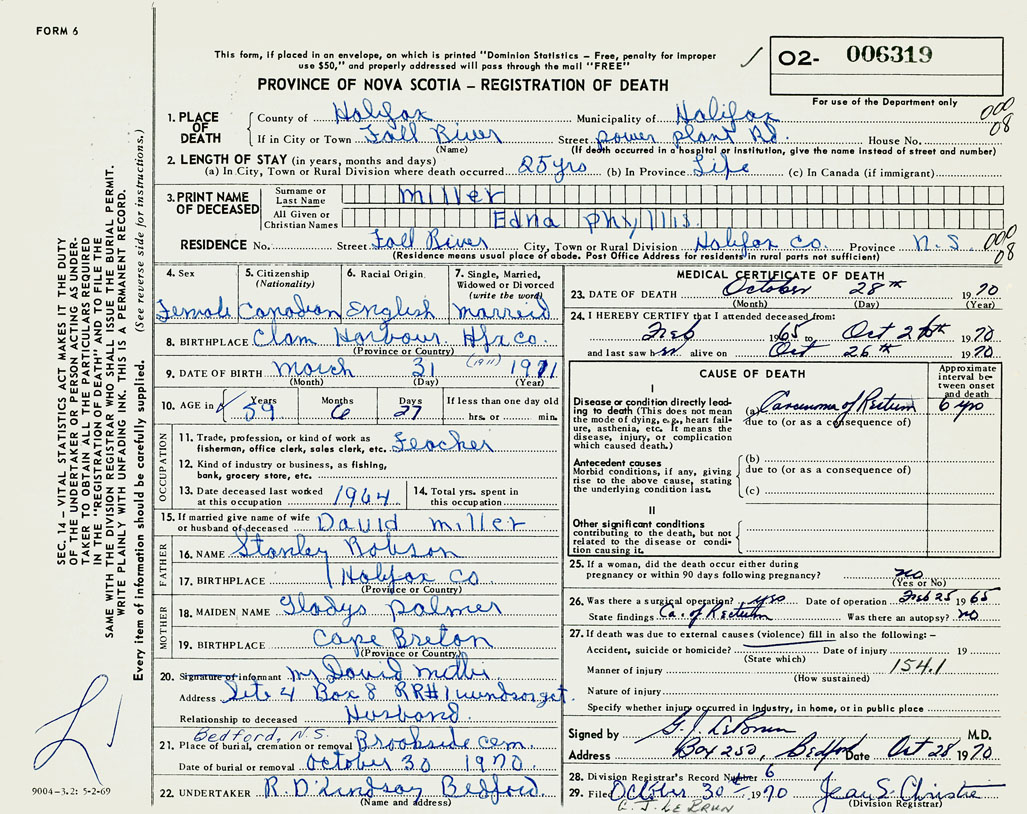 FORM 6
This form, if placed in an envelope, on which is printed "Dominion Statistics – Free, penalty for improper
use $50," and properly addressed will pass through the mail "FREE"
O2- 006319
PROVINCE OF NOVA SCOTIA – REGISTRATION OF DEATH
For use of the Department only
000
08
1. PLACE OF DEATH
County of Halifax Municipality of Halifax
If in City or Town Fall River Street power plant Rd. House No.
(Name) (If death occurred in a hospital or institution, give the name instead of street and number)
2. LENGTH OF STAY (in years, months and days)
(a) In City, Town or Rural Division where death occurred 25 yrs (b) In Province Life (c) In Canada (if immigrant)
3. PRINT NAME OF DECEASED
Surname or Last Name miller
All Given or Christian Names Edna phyllis
RESIDENCE No. Street Fall River City, Town or Rural Division Halifax Co. Province N.S. 000
08
(Residence means usual place of abode. Post Office Address for residents in rural parts not sufficient)
4. Sex
Female
5. Citizenship
(Nationality)
Canadian
6. Racial Origin
English
7. Single, Married,
Widowed or Divorced
(write the word)
married
8. BIRTHPLACE Clam Harbour Hfx co.
(Province or Country)
9. DATE OF BIRTH march 31 (1911) 1911
(Month) (Day) (Year)
10. AGE in Years 59 Months 6 Days 27 If less than one day old
hrs. or min.
OCCUPATION
11. Trade, profession, or kind of work as
fisherman, office clerk, sales clerk, etc. Teacher
12. Kind of industry or business, as fishing,
bank, grocery store, etc.
13. Date deceased last worked
at this occupation 1964
14. Total yrs. spent in
this occupation
15. If married give name of wife
or husband of deceased David miller
FATHER
16. NAME Stanley Robson
17. BIRTHPLACE Halifax Co
(Province or Country)
MOTHER
18. MAIDEN NAME Gladys palmer
19. BIRTHPLACE Cape Breton
(Province or Country)
20. Signature of informant mr David miller
Address Site 4 Box 8 RR#1
Relationship to deceased Husband
Bedford, N.S.
21. Place of burial, cremation or removal Brookside cem.
Date of burial or removal October 30 1970
22. UNDERTAKER R. D'Lindsay Bedford.
(Name and address)
MEDICAL CERTIFICATE OF DEATH
23. DATE OF DEATH October 28th 1970
(Month) (Day) (Year)
24. I HEREBY CERTIFY that I attended deceased from:
Feb 1965 to Oct 26th 1970
and last saw h alive on Oct 26th 1970
CAUSE OF DEATH
Approximate
interval be-
tween onset
and death
I
Disease or condition directly lead-
ing to death (This does not mean
the mode of dying, e.g., heart fail-
ure, asthenia, etc. It means the
disease, injury, or complication
which caused death.)
(a) Carcinoma of Rectum 6 yrs
due to (or as a consequence of)
Antecedent causes
Morbid conditions, if any, giving
rise to the above cause, stating
the underlying condition last.
(b)
due to (or as a consequence of)
(c)
II
Other significant conditions
contributing to the death, but not
related to the disease or condi-
tion causing it.
25. If a woman, did the death occur either during
pregnancy or within 90 days following pregnancy? no
(Yes or No)
26. Was there a surgical operation? yes Date of operation Feb 25 1965
State findings Ca. of Rectum Was there an autopsy? no
27. If death was due to external causes (violence) fill in also the following: –
Accident, suicide or homicide? Date of injury 19
(State which)
Manner of injury 154.1
(How sustained)
Nature of injury
Specify whether injury occurred in industry, in home, or in public place
Signed by G. J. LeBrun M.D.
Address Box 250, Bedford Date Oct 28 1970
28. Division Registrar's Record Number 6
29. Filed October 30 1970 Jean S. Christie
(Division Registrar)
G. J. LE BRUN
SEC. 14 – VITAL STATISTICS ACT MAKES IT THE DUTY
OF THE UNDERTAKER OR PERSON ACTING AS UNDER-
TAKER TO OBTAIN ALL THE PARTICULARS REQUIRED
IN THE "REGISTRATION OF DEATH" AND TO FILE THE
SAME WITH THE DIVISION REGISTRAR WHO SHALL ISSUE THE BURIAL PERMIT.
WRITE PLAINLY WITH UNFADING INK. THIS IS A PERMANENT RECORD.
Every item of information should be carefully supplied. (See reverse side for instructions.)
9004-3.2: 5-2-69